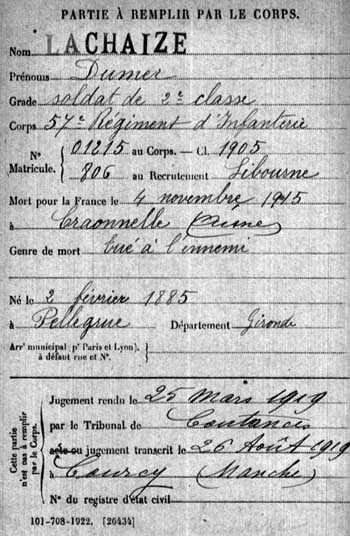 PARTIE À REMPLIR PAR LE CORPS.
Nom LACHAIZE
Prénoms Dumer
Grade soldat de 2e classe
Corps 57e Régiment d'Infanterie
No 01215 au Corps. — Cl. 1905
Matricule. 806 au Recrutement Libourne
Mort pour la France le 4 novembre 1915
à Craonnelle (Aisne)
Genre de mort tué à l'ennemi
Né le 2 février 1885
à Pellegrue Département Gironde
Arrt municipal (pr Paris et Lyon),
à défaut rue et No.
Cette partie
n'est pas à remplir
par le Corps.
Jugement rendu le 25 Mars 1919
par le Tribunal de Coutances
acte ou jugement transcrit le 26 Août 1919
à Courcy (Manche)
No du registre d'état civil
101-708-1922. [26434]